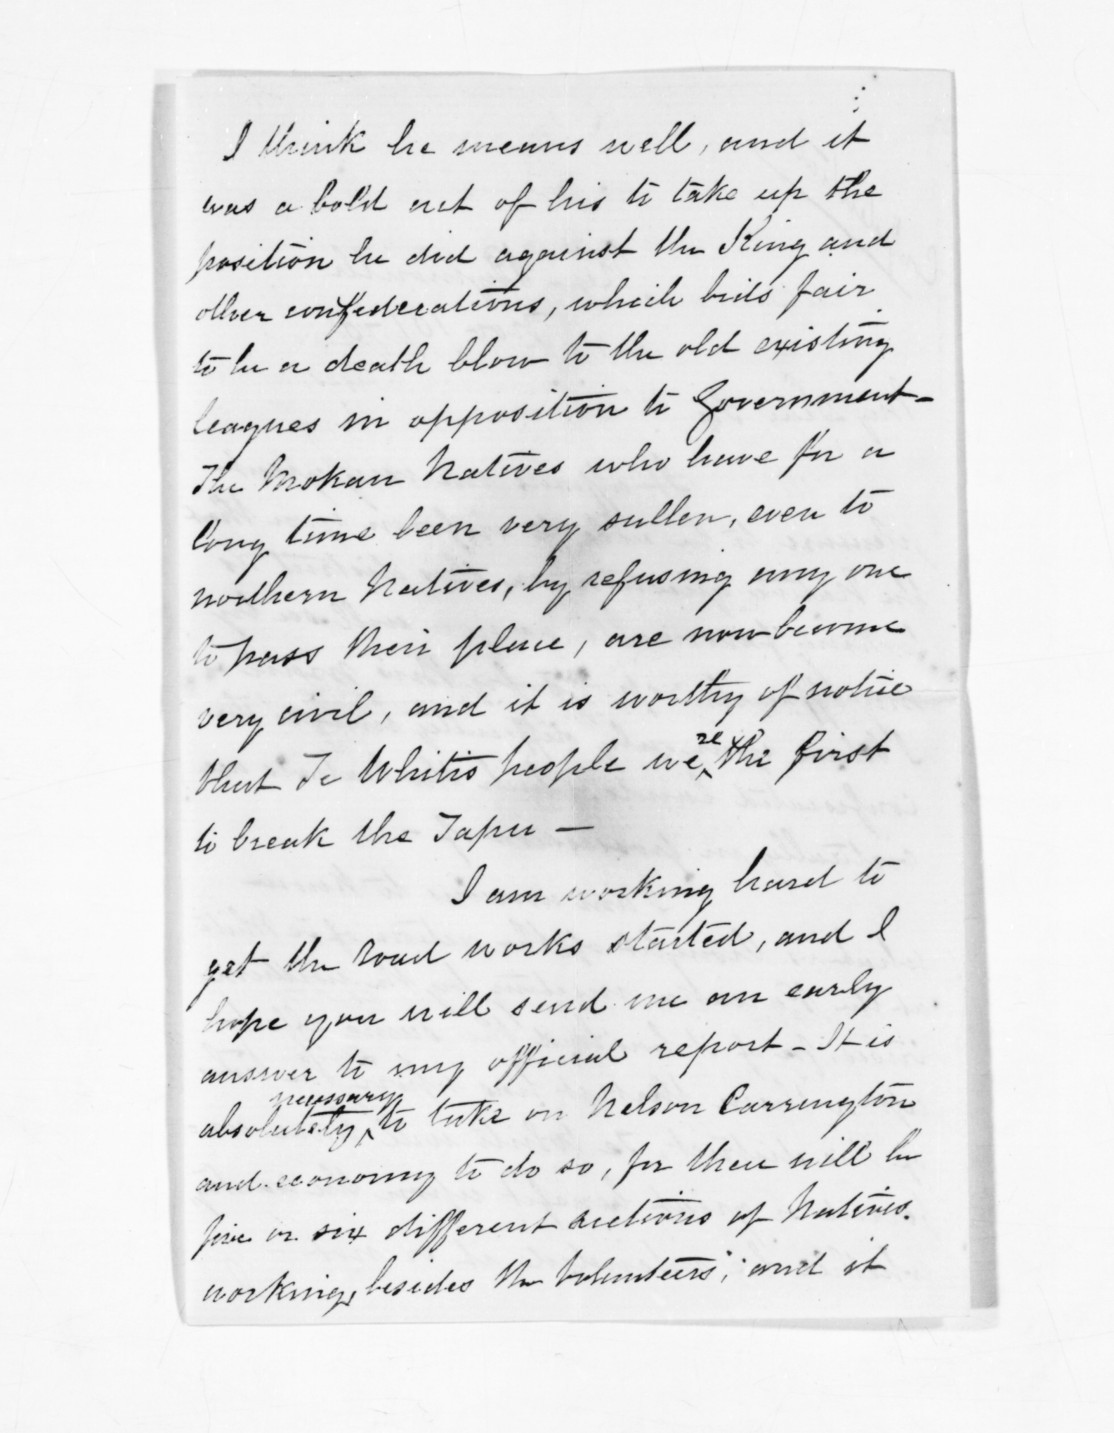 I think he means well, and it
was a bold act of his to take up the
position he did against the King and
other confederations, which bids fair
to be a death blow to the old existing
leagues in opposition to Government -
The Mokau Natives who have for a
long time been very sullen, even to
northern Natives, by refusing any one
to pass their place, are now become
very civil, and it is worthy of notice
that Te Whitis people were the first
to break the Tapu -
I am working hard to
get the road works started, and I
hope you will send me an early
answer to my official report - It is
absolutely necessary to take on Nelson Carrington
and economy to do so, for there will be
five or six different sections of Natives
working, besides the Volunteers, and it